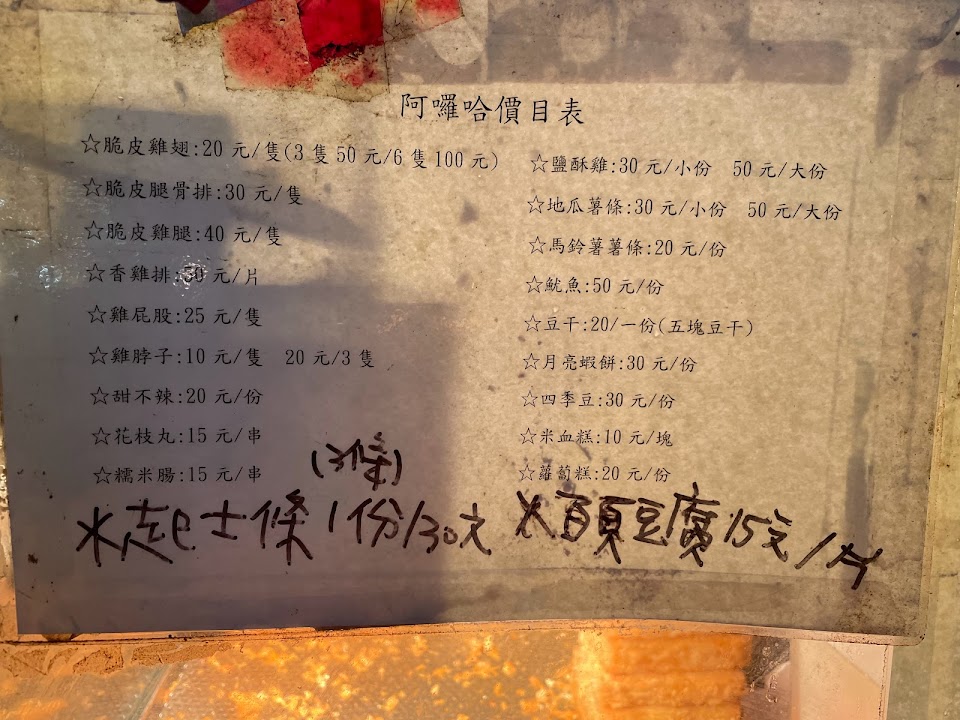 阿囉哈價目表
☆脆皮雞翅:20 元/隻(3 隻 50 元/6 隻 100 元)
☆脆皮腿骨排:30 元/隻
☆脆皮雞腿:40 元/隻
☆香雞排:50 元/片
☆雞屁股:25 元/隻
☆雞脖子:10 元/隻 20 元/3 隻
☆甜不辣:20 元/份
☆花枝丸:15 元/串
☆糯米腸:15 元/串
(3條)
起士條1份/30元
☆鹽酥雞:30 元/小份 50 元/大份
☆地瓜薯條:30 元/小份 50 元/大份
☆馬鈴薯薯條:20 元/份
☆魷魚:50 元/份
☆豆干:20/一份(五塊豆干)
☆月亮蝦餅:30 元/份
☆四季豆:30 元/份
☆米血糕:10 元/塊
☆蘿蔔糕:20 元/份
百頁豆腐15元/片